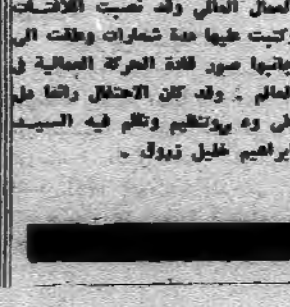 العمال العالي وقد نصبت اللافتات
وكتبت عليها عدة شعارات وعلقت الى
جانبها صور قادة الحركة العمالية في
العالم . وقد كان الاحتفال رائعا دل
على وتنظيم وتكلم فيه السيد
ابراهيم خليل